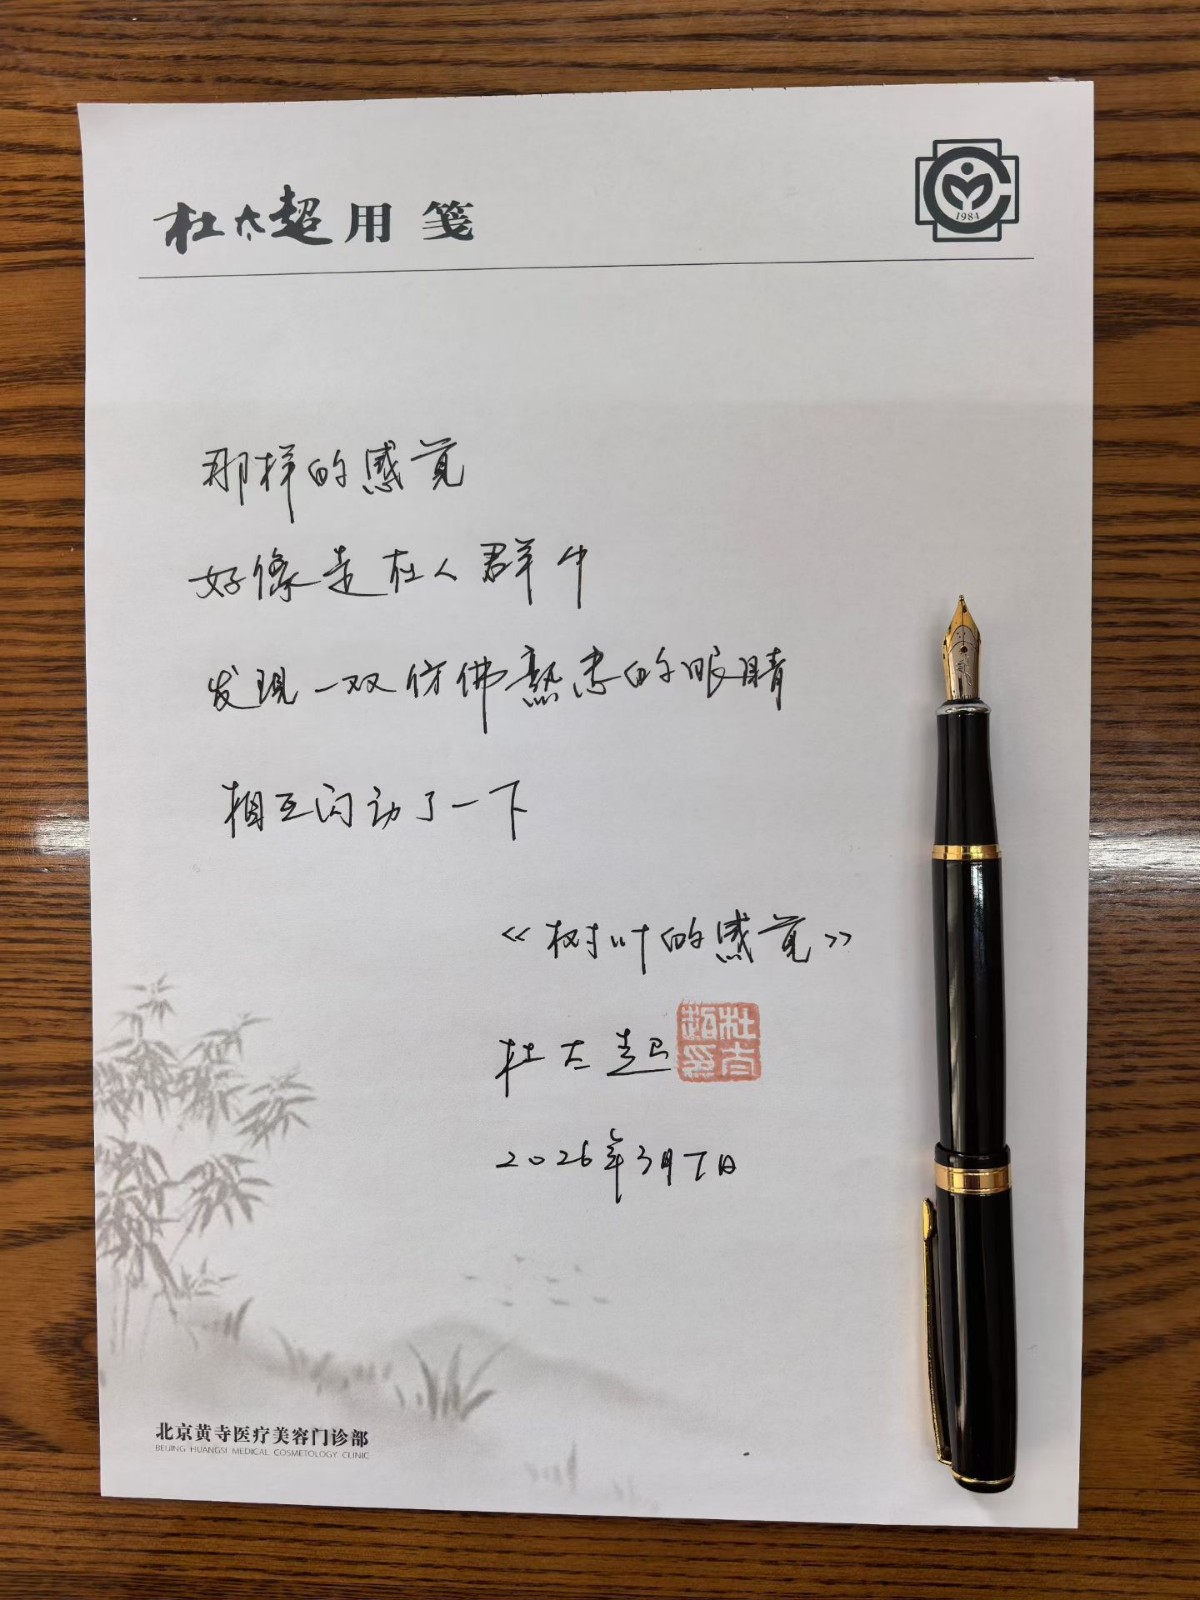 杜太超用笺
1984
那样的感觉
好像走在人群中
发现一双仿佛熟悉的眼睛
相互闪动了一下
《树叶的感觉》
杜太超
杜太超印
2026年3月7日
北京黄寺医疗美容门诊部
BEIJING HUANGSI MEDICAL COSMETOLOGY CLINIC